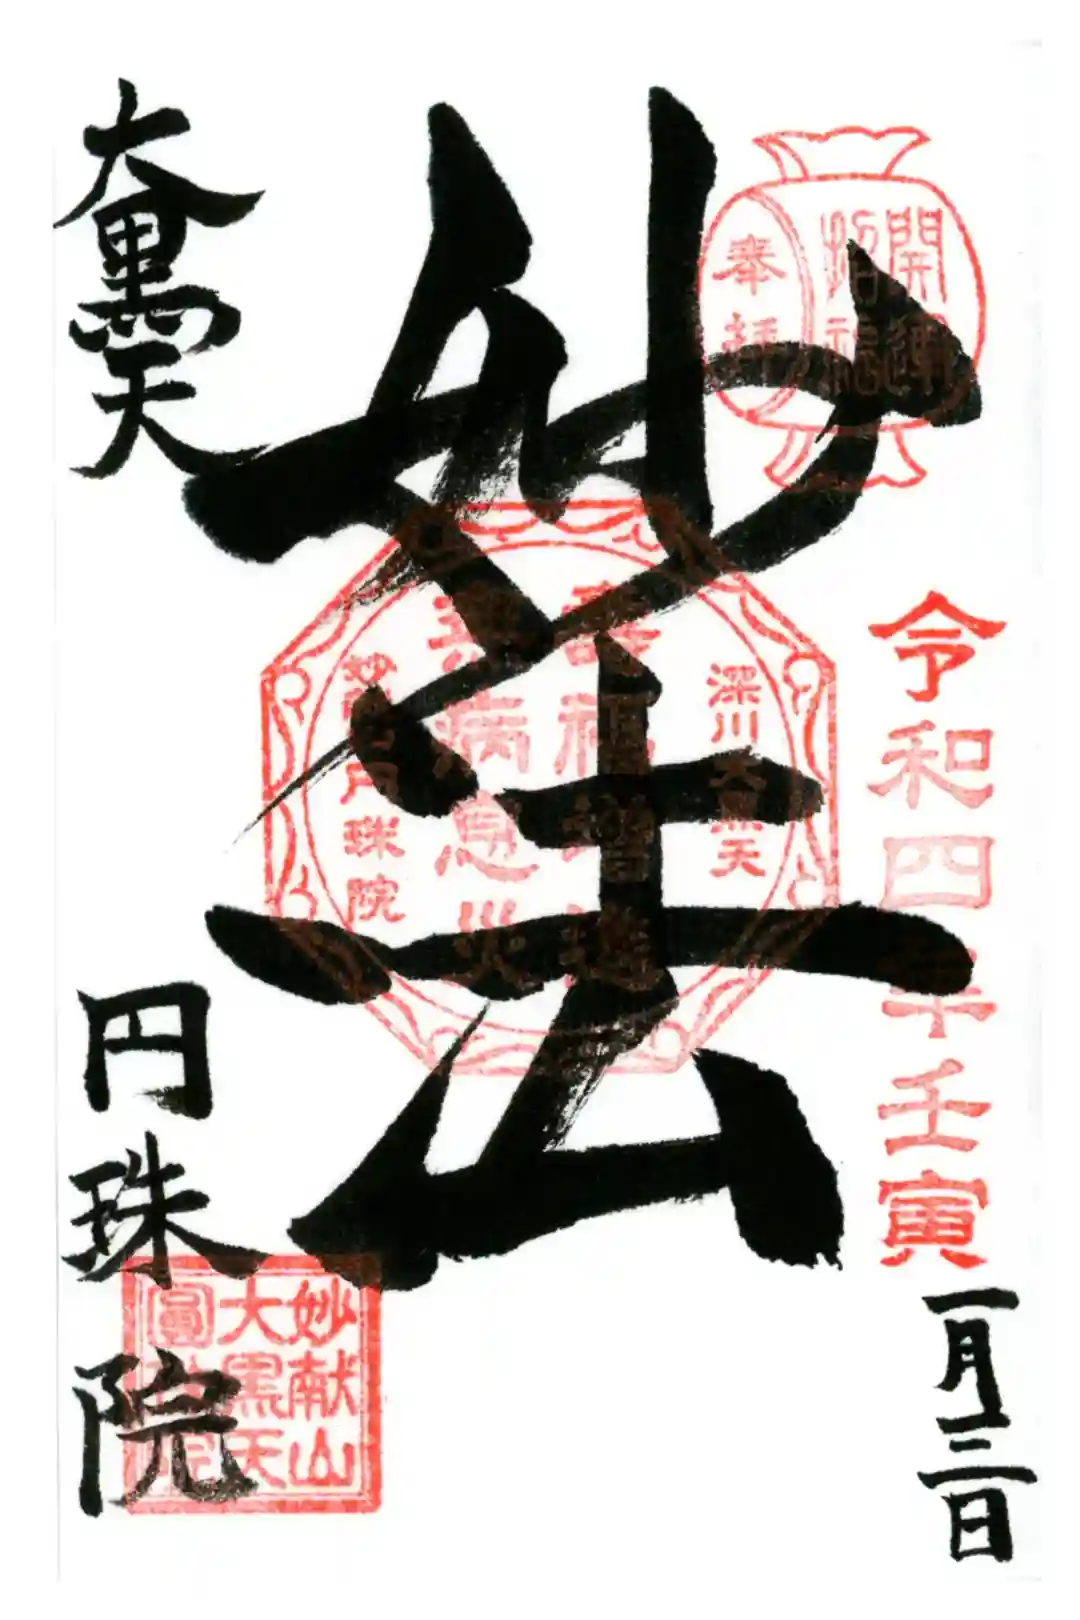 奉拝
開運
招福
令和四年壬寅
一月三日
妙法
深川大黒天
寿福増進
無病息災
妙栄山円珠院
大黒天
円珠院
妙献山
大黒天
圓珠院